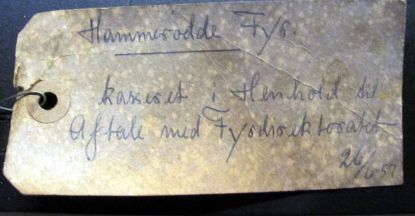 Hammerodde Fyr.
kasseret i Henhold til
Aftale med Fyrdirektoratet
26/6 51